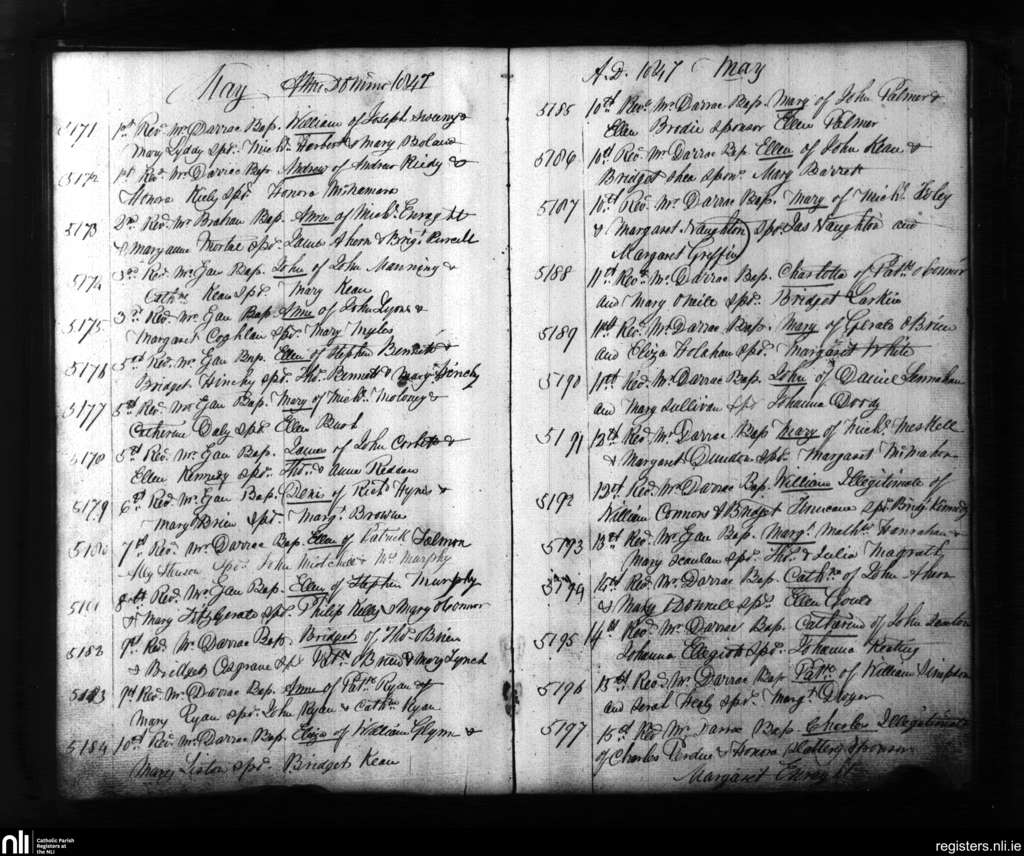 May Anno Domino 1847
5171 1st Revd. Mr. Darrac Bap. William of Joseph &
Mary Lyddy Spr. Mich. Herbert & Mary Boland
5172 1st Revd. Mr. Darrac Bap. Andrew of Andrew Reidy &
Honora Kiely Spr. Honora McNamara
5173 2nd Revd. Mr. Brahan Bap. Anne of Michl. Enright
& Maryanne Spr. James Ahern & Brigt. Purcell
5174 3rd Revd. Mr. Gan Bap. John of John Manning &
Cathne. Kean Spr. Mary Kean
5175 3rd. Revd. Mr. Gan Bap. Anne of John Lyons &
Margaret Coghlan Spr. Mary Myles
5176 5th Revd. Mr. Gan Bap. Ellen of Stephen Bennett &
Bridget Hinchy Spr. Thos. Bennett & Mary Hinchy
5177 5th Revd. Mr. Gan Bap. Mary of Michl. Molony &
Catherine Daly Spr. Ellen
5178 5th Revd. Mr. Gan Bap. James of John Corbett &
Ellen Kennedy Spr. Thos. & Anne Reddan
5179 6th Revd. Mr. Gan Bap. Denis of Richd. Hynes &
Mary Brien Spr. Margt. Browne
5180 7th Revd. Mr. Darrac Bap. Ellen of Patrick
Ally Spr. John Mitchell & Murphy
5181 8th Revd. Mr. Gan Bap. Ellen of Stephen Murphy
& Mary Fitzgerald Spr. Philip Kelly & Mary O Connor
5182 9th Revd. Mr. Darrac Bap. Bridget of Thos. OBrien
& Bridget Cosgrave Sp. Patk. OBrien & Mary Lynch
5183 9th Revd. Mr. Darrac Bap. Anne of Patk. Ryan &
Mary Ryan Spr. John Ryan & Cathn. Ryan
5184 10th Revd. Mr. Darrac Bap. Eliza of William Glynn &
Mary Liston Spr. Bridget Kean
A.D. 1847 May
5185 10th Revd. Mr. Darrac Bap. Mary of John Palmer &
Ellen Brodie Sponsor Ellen Palmer
5186 10th Revd. Mr. Darrac Bap. Ellen of John Kean &
Bridget Shea Spon. Mary Barrett
5187 10th Revd. Mr. Darrac Bap. Mary of Michl. Foley
& Margaret Naughton Spr. Jas Naughton and
Margaret Griffin
5188 11th Revd. Mr. Darrac Bap. Charlotte of Patk. O Connor
and Mary ONeill Spr. Bridget Larkin
5189 11th Revd. Mr. Darrac Bap. Mary of Gerald OBrien
and Eliza Holahan Spr. Margaret White
5190 11th Revd. Mr. Darrac Bap. John of Daniel
and Mary Sullivan Spr Johanna Doody
5191 13th Revd. Mr. Darrac Bap Mary of Michl. Meskell
& Margaret Dundon Spr. Margaret McMahon
5192 13th Revd. Mr. Darrac Bap. William Illegitimate of
William Connors & Bridget Finucane Spr. Brigt. Kennedy
5193 13th Revd. Mr. Gan Bap. Margt. Hanrahan &
Mary Scanlan Spr. Thos. & Julia Magrath
5194 14th Revd. Mr. Darrac Bap. Cathne. of John Ahern
& Mary ODonnell Spr. Ellen
5195 14th Revd. Mr. Darrac Bap. Catharine of John
Johanna Elligott Spr. Johanna Keating
5196 15th Revd. Mr. Darrac Bap Patk. of William Simpson
and Sarah Healy Spr. Margt. Dwyer
5197 15th Revd Mr Darrac Bap. Charles Illegitimate
of Charles Perdue & Honora Slattery Sponsor
Margaret Enright
nli
Catholic Parish
Registers at
the NLI
registers.nli.ie